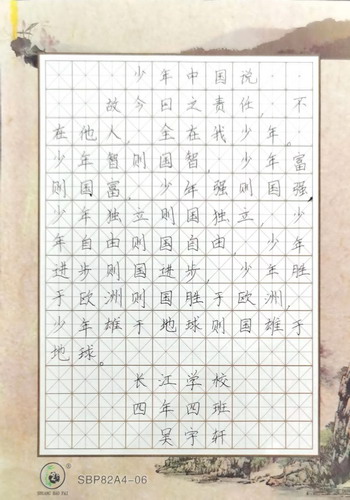 少年中国说
故今日之责任,不
在他人,全在我少年。
少年智则国智,少年富
则国富,少年强则国强
少年独立则国独立,少
年自由则国自由,少年
进步则国进步,少年胜
于欧洲则国胜于欧洲,
少年雄于地球则国雄于
地球。
长江学校
四年四班
吴宇轩
SBP82A4-06